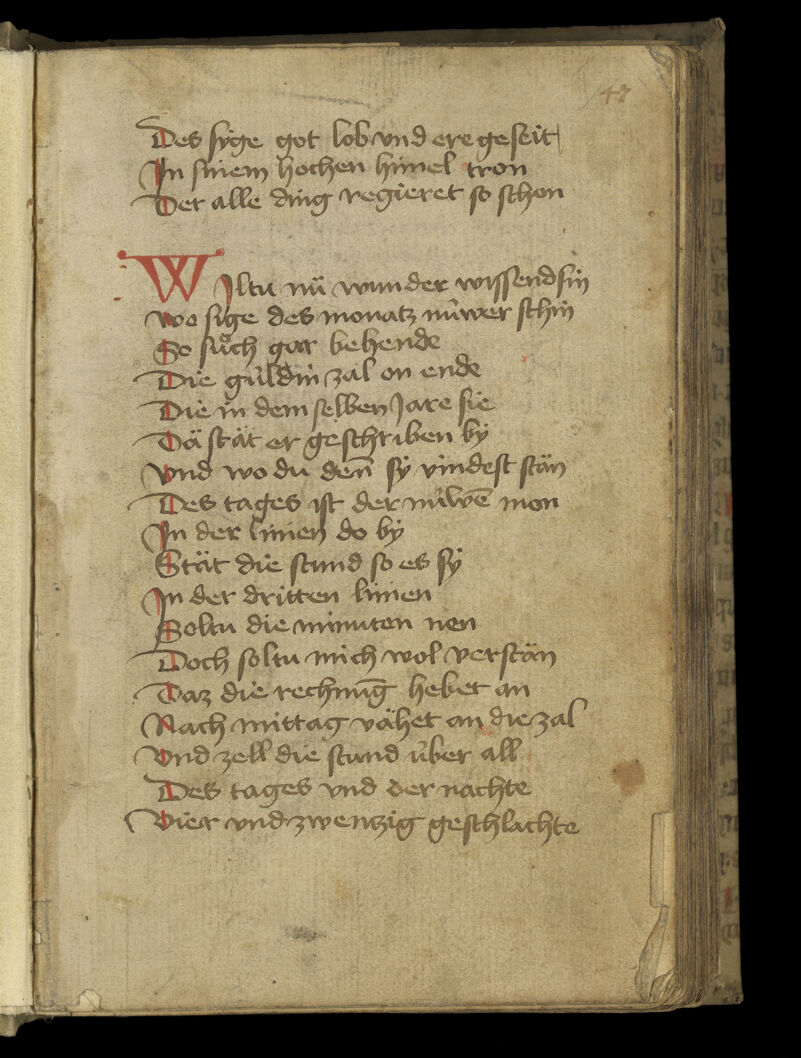 47
Des syge got lob vnd ere geseit
In sinem hochen himel tron
Der alle ding regieret so schon
Wiltu nü wunder wissend sin
wo sige des monatz nüwer schin
So sůch gar behende
Die güldin zal on ende
Die in dem selben Jare sie
Dä stät er geschriben bÿ
Vnd wo du deñ sÿ vindest stän
Des tages ist der nüwē mon
In der linien do bÿ
Stät die stund so es sÿ
In der dritten linien
Soltu die minuten nen
Doch soltu mich wol verstän
Daz die rechnūg hebet an
Nach mittag vähet an die zal
Vnd zell die stund über all
Des tages vnd der nachte
Vier vnd zwenzig geschlachte